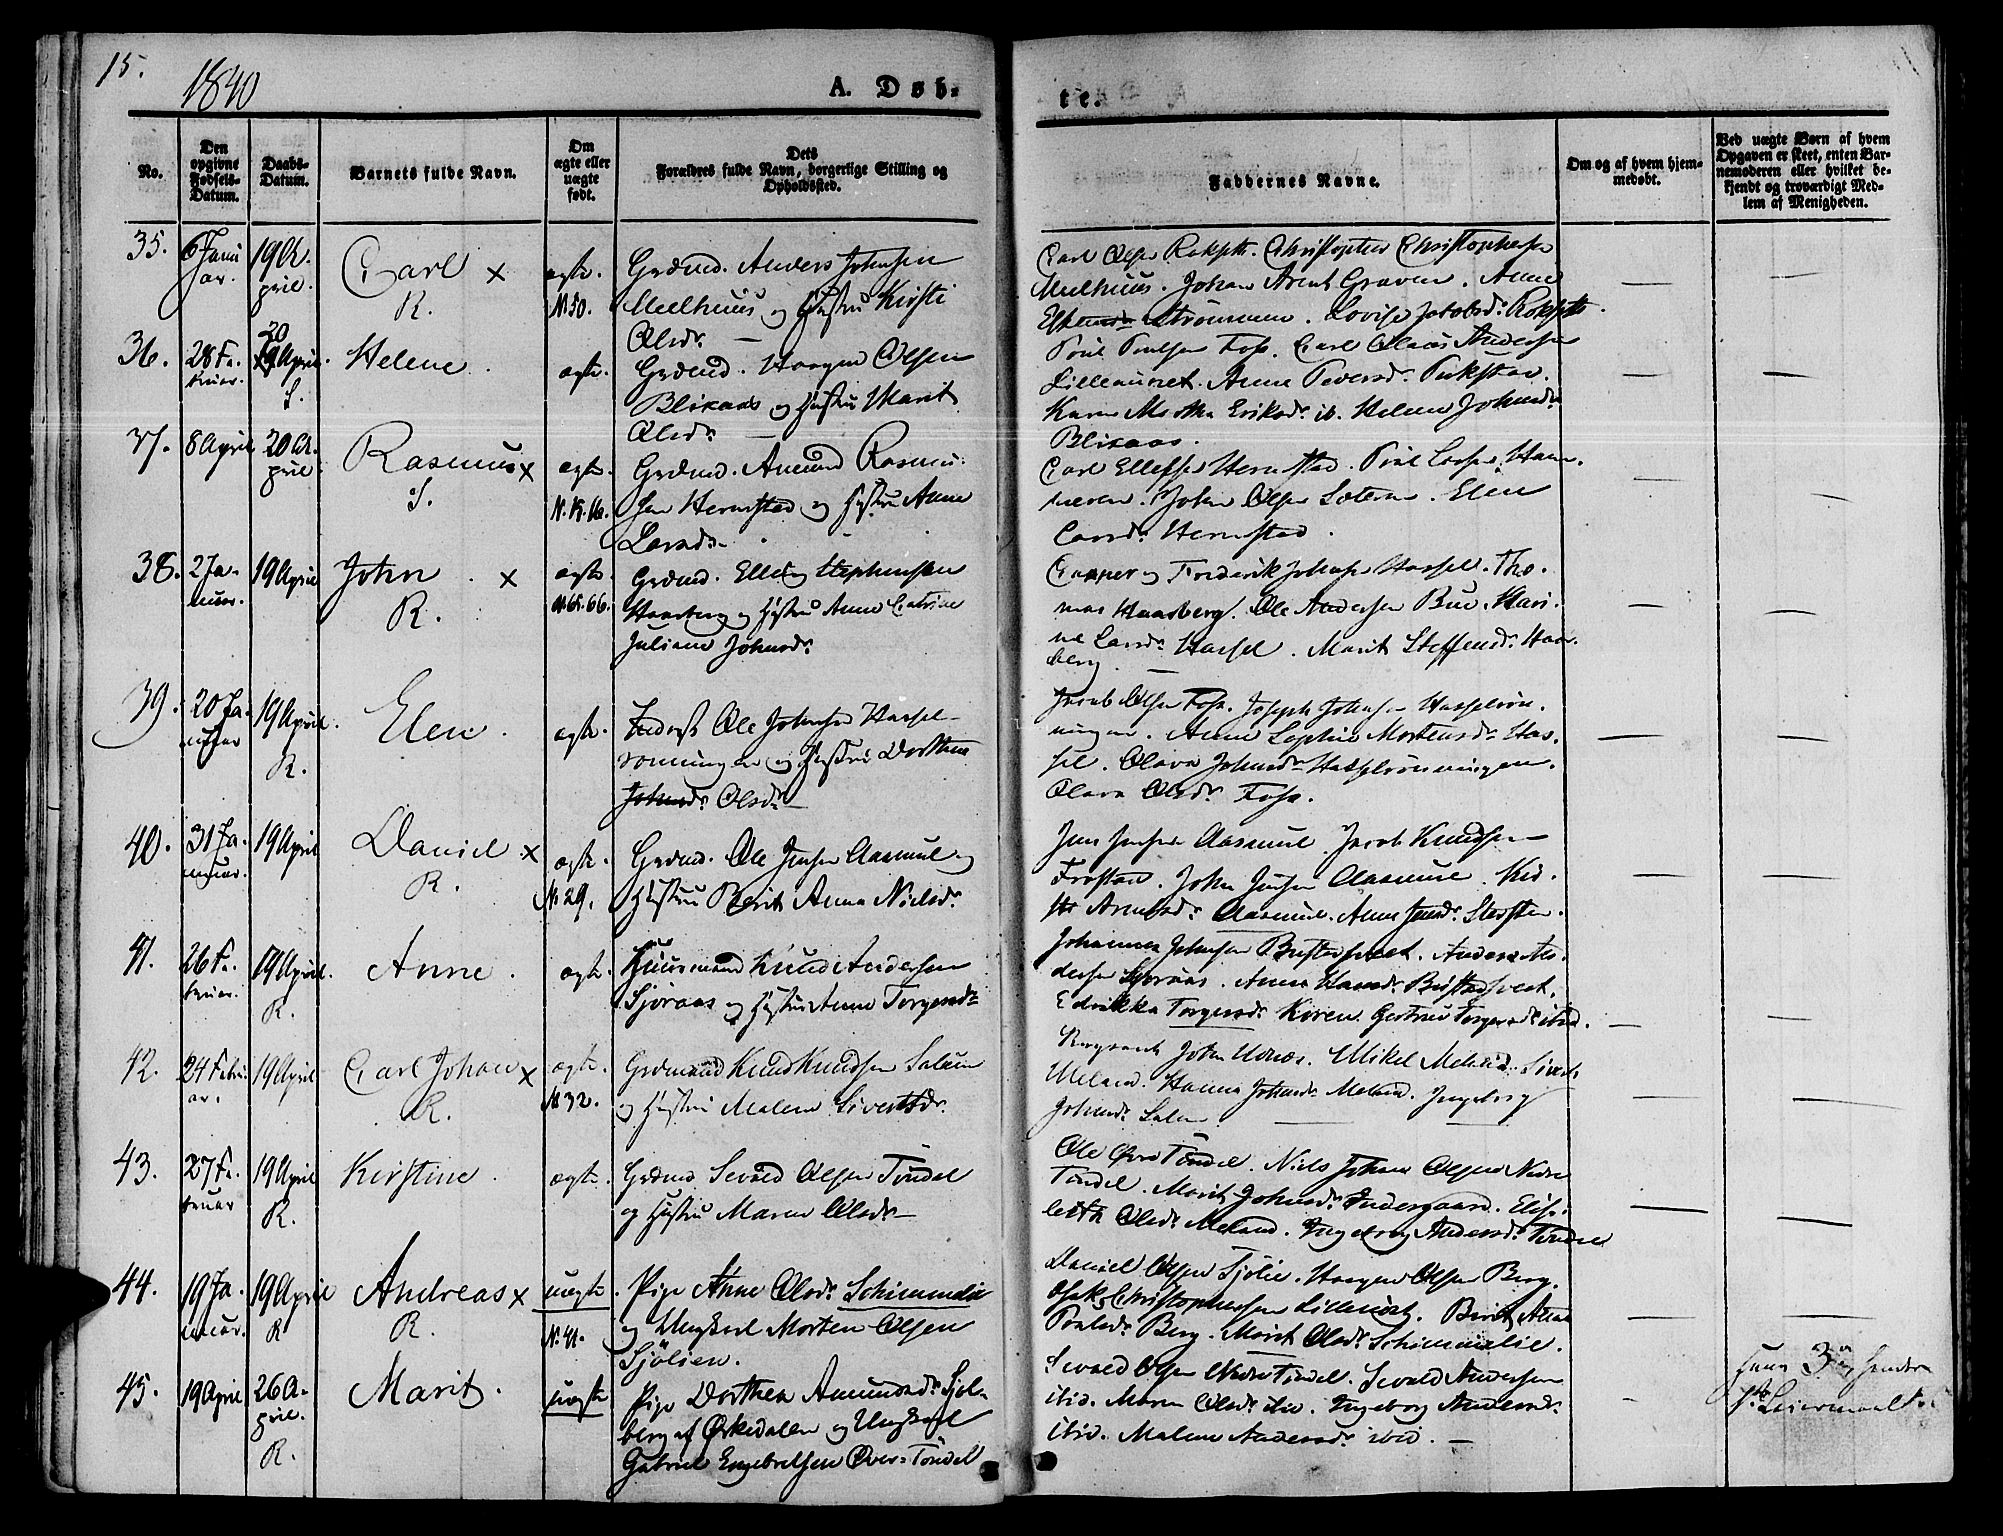 15.
1840
A. Døb-
te.
No.
Den opgivne Fødsels-Datum.
Daabs-Datum.
Barnets fulde Navn.
Om ægte eller uægte født.
Dets Forældres fulde Navn, borgerlige Stilling og Opholdssted.
Faddernes Navne.
Om og af hvem hjemmedøbt.
Ved uægte Børn af hvem Opgaven er skeet, enten Barnemoderen eller hvilket bekjendt og troværdigt Medlem af Menigheden.
35. 6 Janu 19 A- Carl x ægte. Grdmd. Anders Johnsen
ar. pril. R. N. 50. Meelhuus og Hustru Kirsti
Olsdr. —
Carl Olsen Christopher Christophersen
Meelhuus. Johan Arent Graven. Anne
Strømmen. Lovise Jakobsd:
36. 28 Fe- 20 April Helene. ægte. Grdmd. Haagen Olsen
bruar. S. Blikaas og Hustru Marit
Olsdr. —
Poul Poulsen Foss. Carl Olaus Andersen
Anne Pedersdr.
Karen Martha Eriksdr. ib. Helene Johnsdr
Blikaas.
37. 8 April 20 A- Rasmus x ægte. Grdmd. Amund Rasmu-
pril S. sen Hernstad og Hustru Anne
Larsdr.
Carl Ellefsen Hernstad. Poul Larsen Ham-
meren. John Olsen Sæteren. Elen
Larsdr. Hernstad.
38. 2 Ja- 19 April John x ægte. Grdmd. Elling Stephensen
nuar. R. N. 65. 66. Haarberg og Hustru Anne Catrine
Juliane Johnsdr.
Casper og Frederik Johnsen Hassel. Tho-
mas Haarberg. Ole Andersen Bue. Mari-
ne Larsdr. Hassel. Marit Steffensdr. Haar-
berg —
39. 20 Ja- 19 April. Elen. ægte. Inderst Ole Johnsen Hassel-
nuar R. rønningen og Hustru Dorthea
Johnsdr. Olsdr. —
Jacob Olsen Foss. Joseph Johnsen Hasselrøn-
ningen. Anne Sophie Mortensdr. Has-
sel. Olava Johnsdr. Hasselrønningen.
Olava Olsdr. Foss.
40. 31 Ja- 19 April Daniel x ægte. Grdmd. Ole Jensen Aasmul og
nuar. R. N. 29. Hustru Berit Anna Nielsdr.
Jens Jensen Aasmul. Jacob Knudsen
Frostad. John Jensen Aasmul. Kir-
sti Arntsdr. Aasmul. Anne Jensdr.
41. 26 Fe- 19 April. Anne. ægte. Huusmand Knud Andersen
bruar. R. Sjøraas og Hustru Anne Torgersdr
Johannes Johnsen Anders An-
dersen Sjøraas. Anne Hansdr.
Torgersdr. Gjertrud Torgersdr. ibid.
42. 24 Febru- 19 April Carl Johan x ægte. Grdmand Knud Knudsen Salen
ar. R. N. 32. og Hustru Malene Sivertsdr.
John Mikel Meland. Sivert
Meland. Hanna Johnsdr. Meland. Ingeborg
Johnsdr. Salen —
43. 27 Fe- 19 April Kirstine. ægte. Grdmd Sevald Olsen Tøndel
bruar R. og Hustru Maren Olsdr. —
Ole Øvre Tøndel. Niels Johan Olsen Nedre
Tøndel. Marit Johnsdr. Indergaard. Elisa-
beth Olsdr. Meland. Ingeborg Andersdr. Tøndel
44. 19 Ja- 19 April Andreas x uægte. Pige Anne Olsdr. Schimmelie
nuar. R R. N. 41. og Ungkarl Morten Olsen
Sjølien.
Daniel Olsen Sjølie. Haagen Olsen Berg.
Christophersen Berit Anne
Poulsdr. Berg. Marit Olsdr. Schimmelie.
45. 19 April 26 A- Marit. uægte Pige Dorthea Amundsdr. Sjøl-
pril. R. berg af Ørkedalen og Ungkarl
Gabriel Engebrethsen Øver-Tøndel
Sevald Olsen Nedre Tøndel. Sevald Andersen
ibid. Maren Olsdr. ibid. Ingeborg Andersdr.
ibid. Malene Andersdr. ibid. —
3
Leiermaal